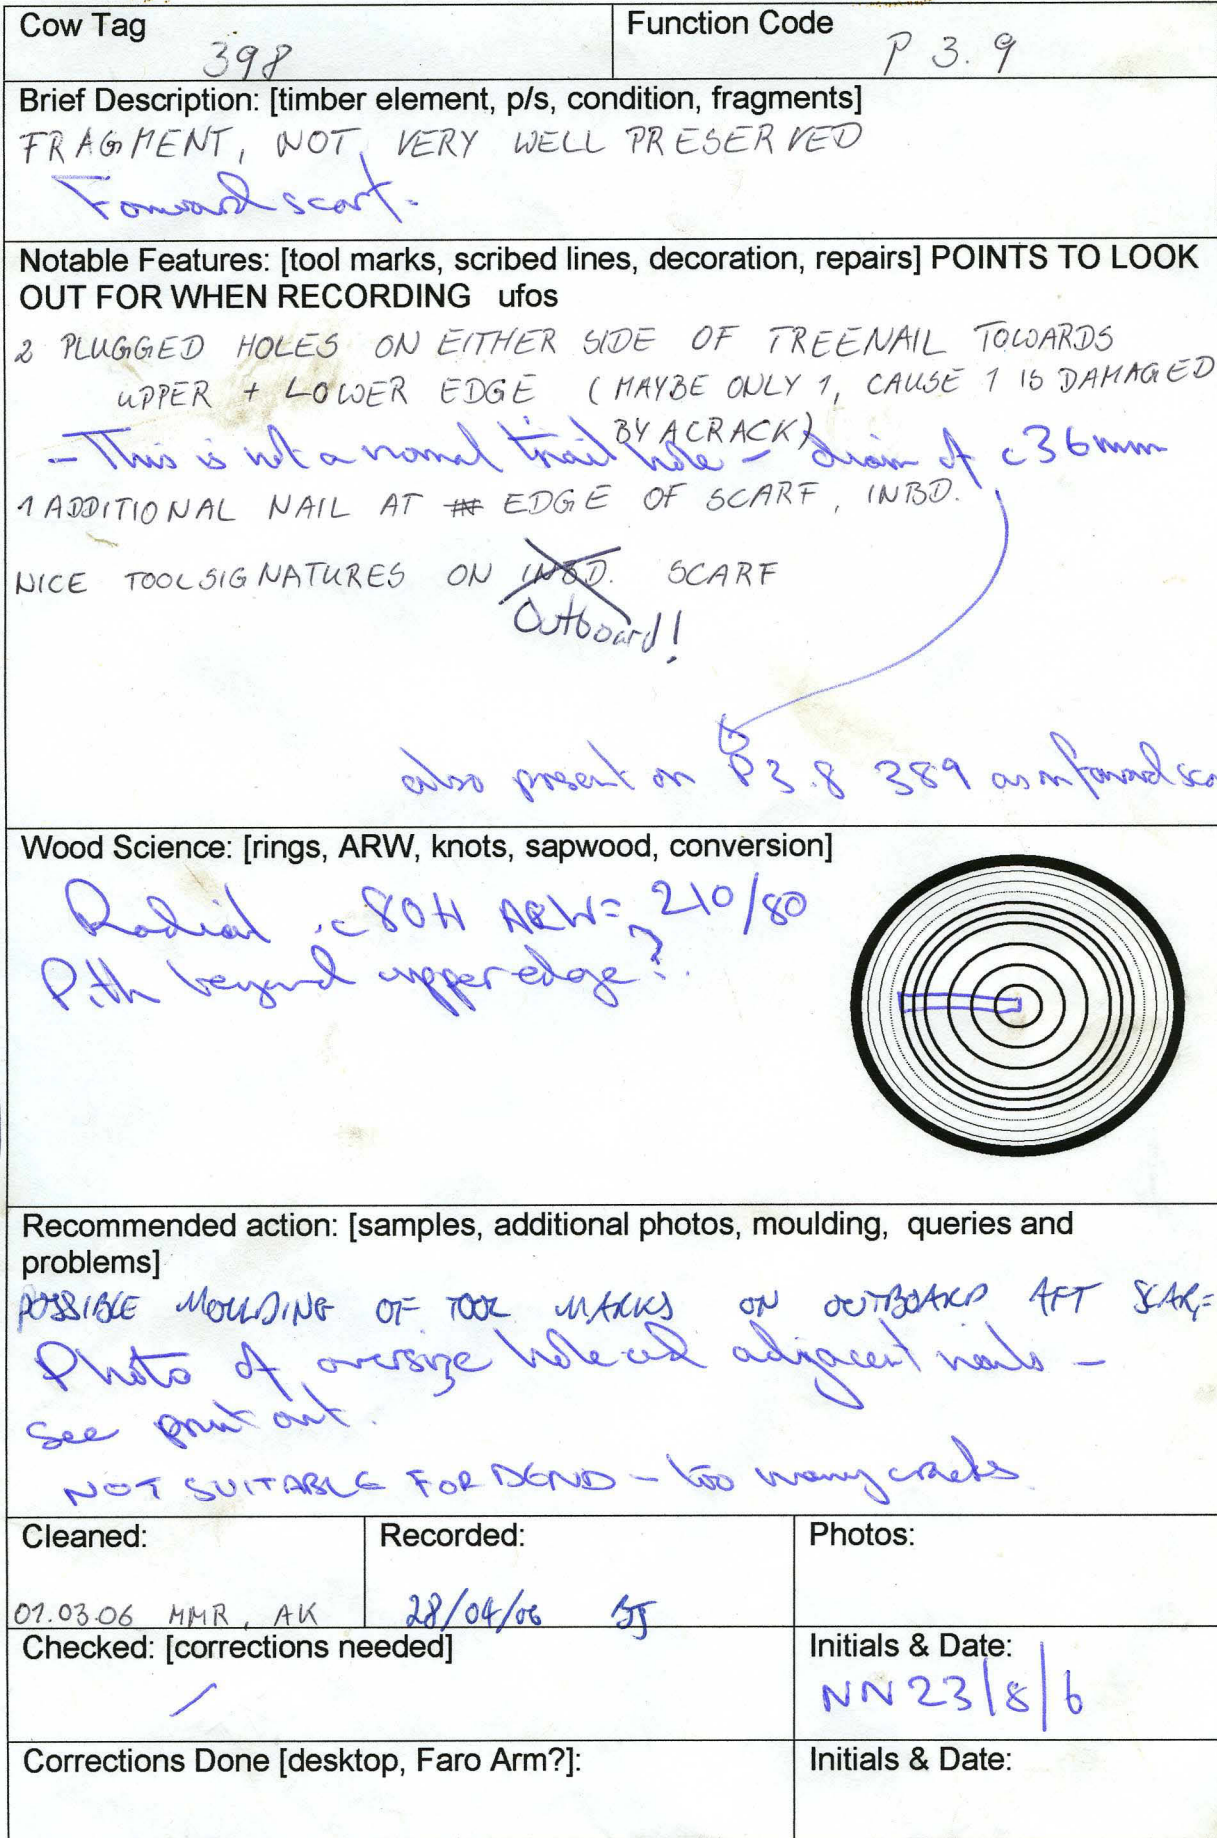 Cow Tag
398
Function Code
P 3.9
Brief Description: [timber element, p/s, condition, fragments]
FRAGMENT, NOT VERY WELL PRESERVED
Forward scarf.
Notable Features: [tool marks, scribed lines, decoration, repairs] POINTS TO LOOK
OUT FOR WHEN RECORDING ufos
2 PLUGGED HOLES ON EITHER SIDE OF TREENAIL TOWARDS
UPPER + LOWER EDGE (MAYBE ONLY 1, CAUSE 1 IS DAMAGED
BY A CRACK)
- This is not a normal hole - diam of c36mm
1 ADDITIONAL NAIL AT EDGE OF SCARF, INBD.
NICE TOOLSIGNATURES ON INBD. SCARF
Outboard!
also present on P3.8 389 as on forward sca
Wood Science: [rings, ARW, knots, sapwood, conversion]
Radial. c80H ARW= 210/80
Pith beyond upper edge?
Recommended action: [samples, additional photos, moulding, queries and
problems]
POSSIBLE MOULDING OF TOOL MARKS ON OUTBOARD AFT SCARF
Photo of oversize hole and adjacent nails -
see print out.
NOT SUITABLE FOR DEND - too many cracks
Cleaned:
01.03.06 MMR, AK
Recorded:
28/04/06 BJ
Photos:
Checked: [corrections needed]
/
Initials & Date:
NN 23/8/6
Corrections Done [desktop, Faro Arm?]:
Initials & Date: